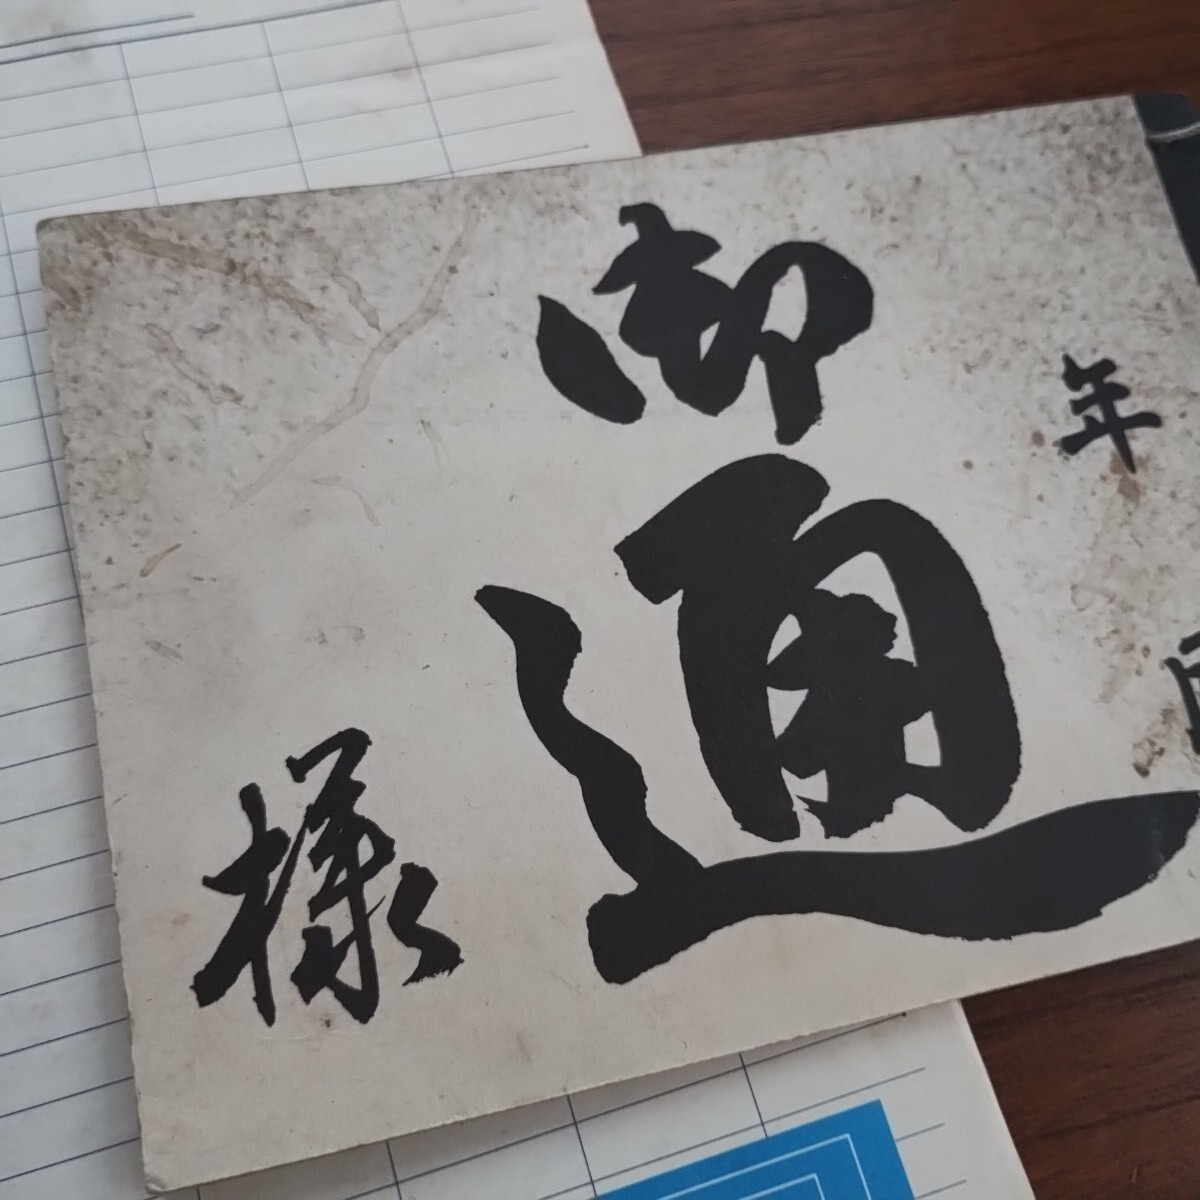 年
御通
様